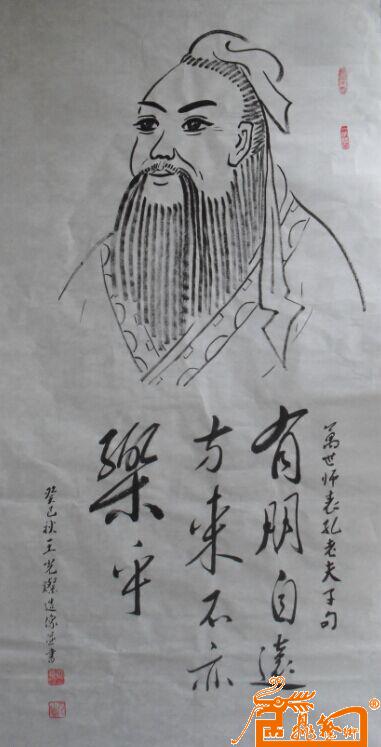 萬世师表孔老夫子句
有朋自遠
方来不亦
樂乎
癸巳秋王光璨造像並書